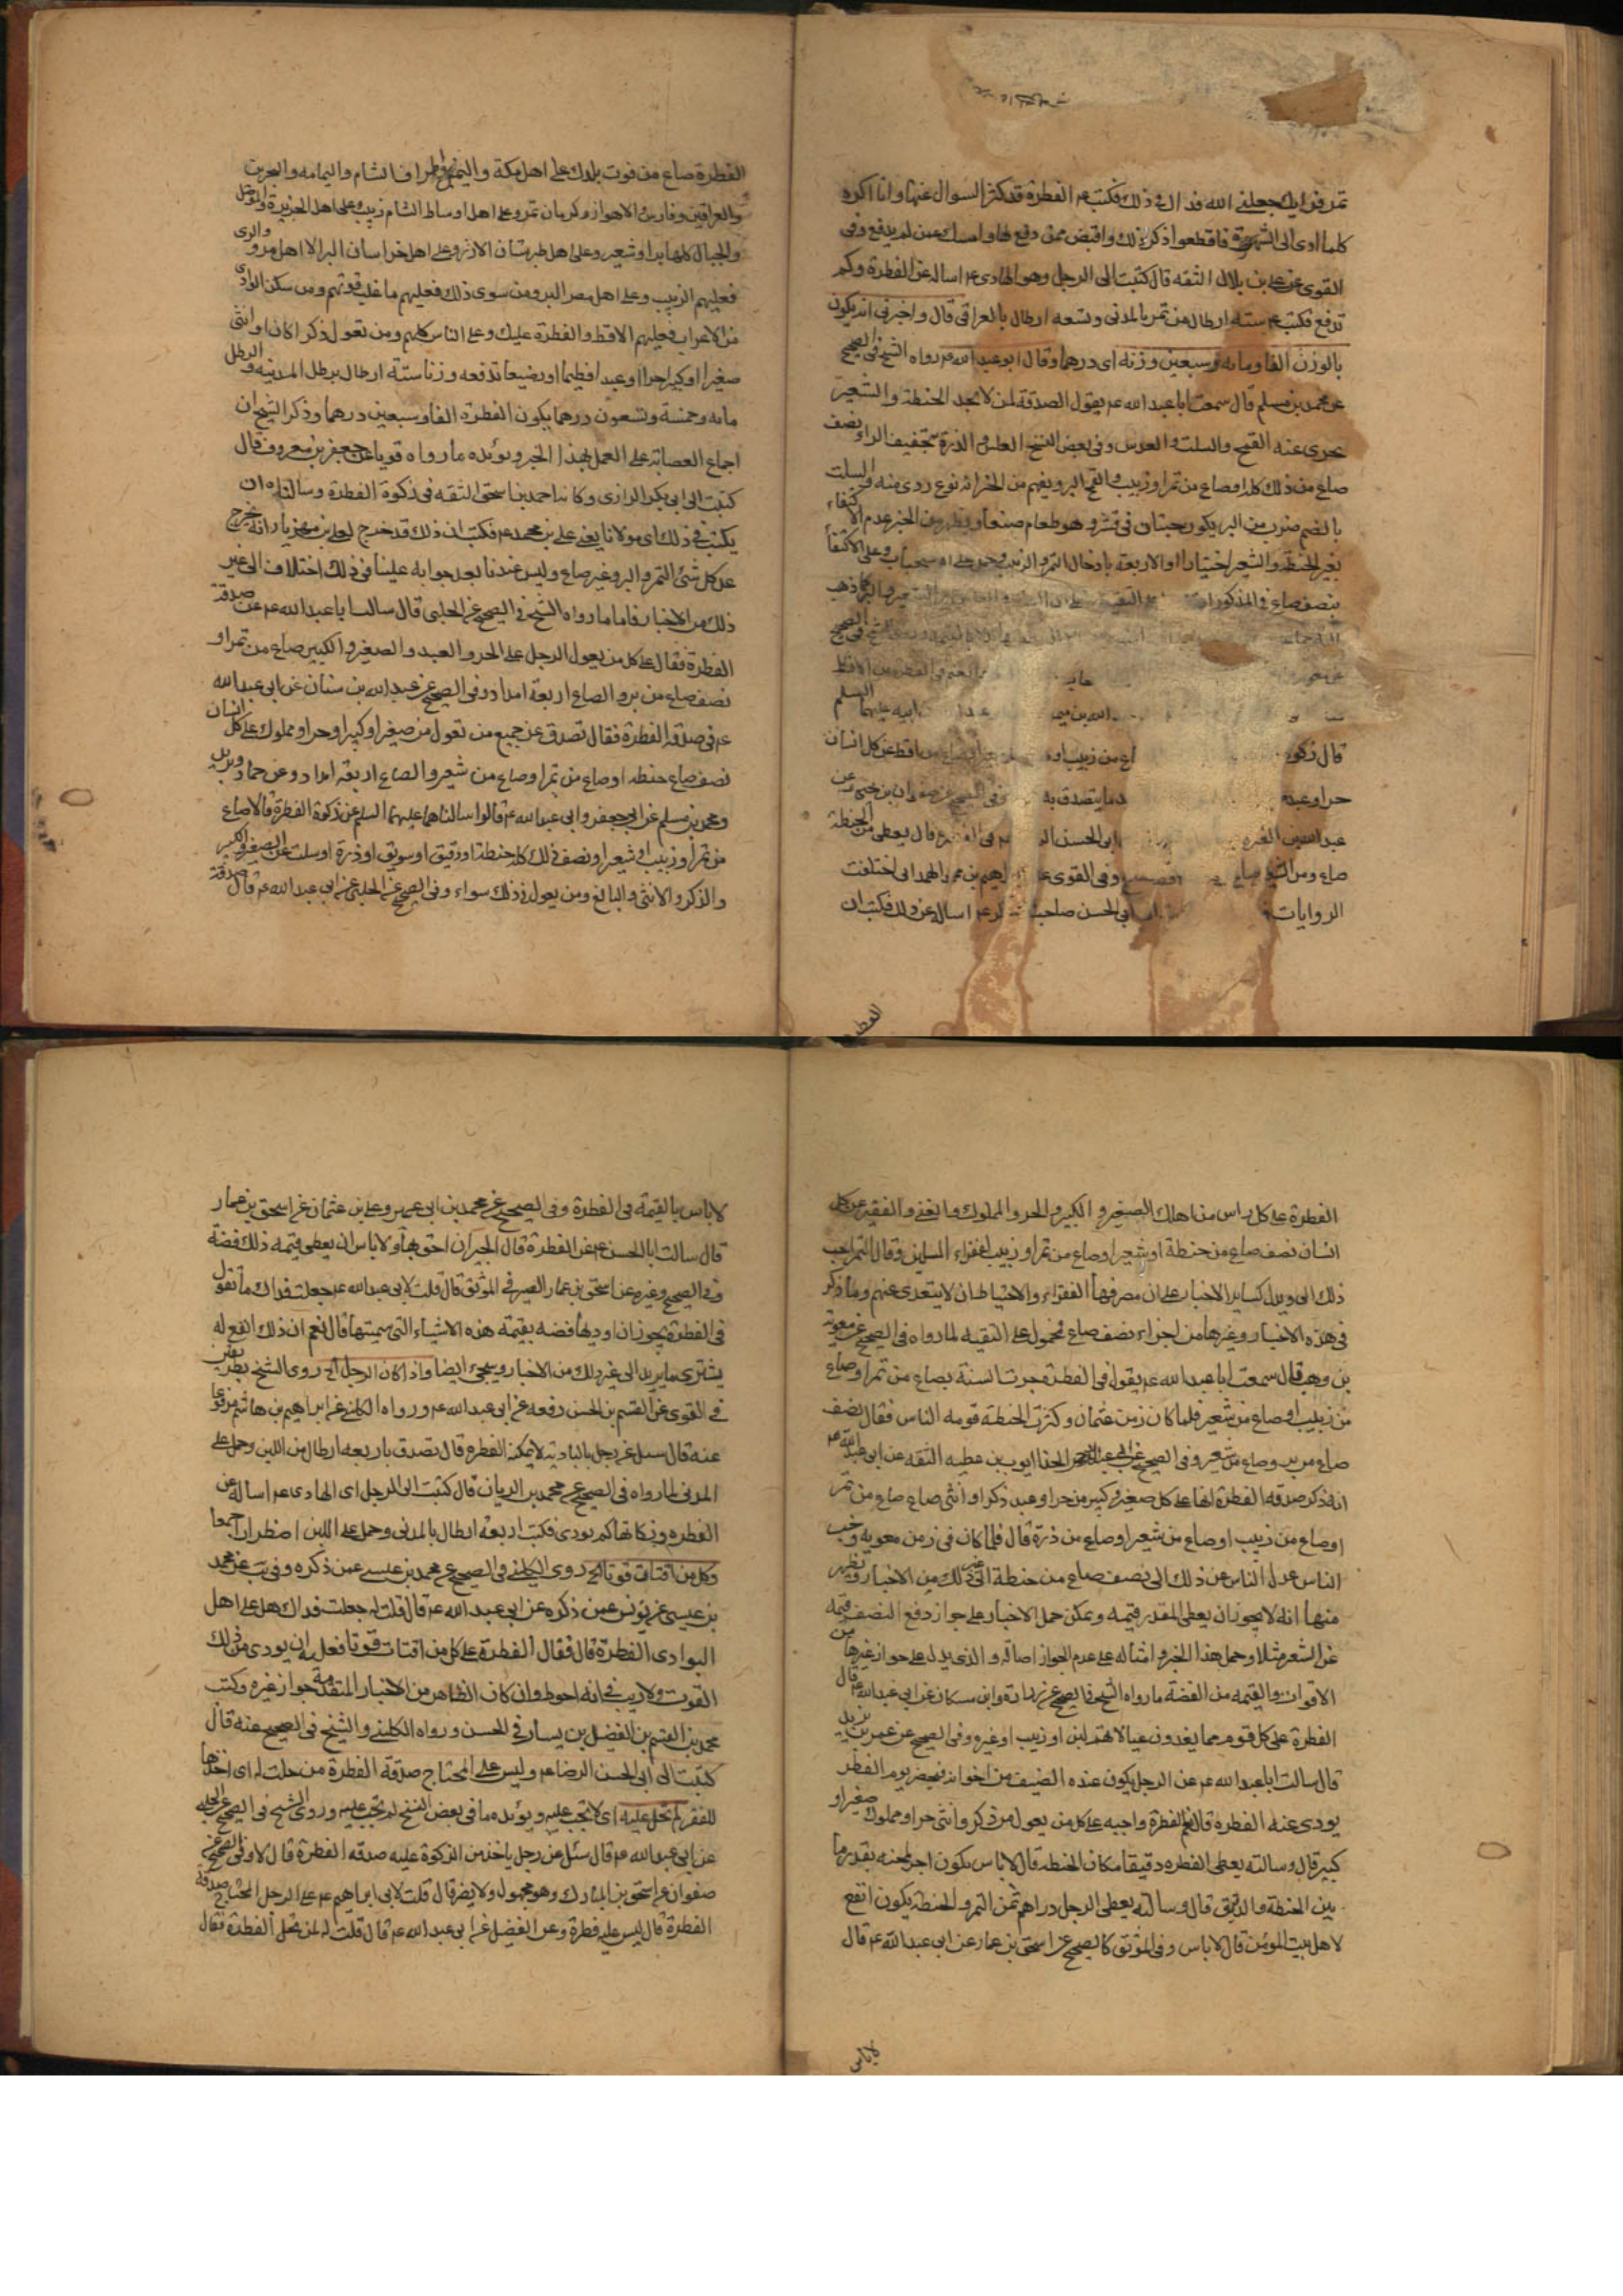 تمر فرايك جعلني الله فداك في ذلك فكتب عم الفطرة قد كثر السوال عنها وانا اكره
كلما ادى الى الشهرة فاقطعوا ذكر ذلك واقبض ممن دفع لها وامسك عمن لم يدفع وفى
القوى عن على بن بلال الثقه قال كتبت الى الرجل وهو الهادى عم اساله عن الفطرة وكم
تدفع فكتب عم ستة ارطال من تمر بالمدنى وتسعه ارطال بالعراقى قال واخبرنى انه يكون
بالوزن الفا ومايه وسبعين وزنة اى درهما وقال ابو عبد الله عم رواه الشيخ فى الصحيح
عن محمد بن مسلم قال سمعت ابا عبد الله عم يقول الصدقة لمن لا يجد الحنطة والشعير
يجزى عنه القمح والسلت والعدس وفى بعض النسخ العلس والذرة بتخفيف الراء ونصف
صاع من ذلك كله او صاع من تمر او زبيب والقمح البر ويفهم من نوع ردى منه والسلت
بالضم ضرب من البر يكون حبتان فى قشر وهو طعام صنعا ويظهر من الخبر عدم الاكتفاء
بغير الحنطة والشعير اختيارا او الاربعة بادخال التمر والزبيب وحمل على الاستحباب وعلى الاكتفا
بنصف صاع فى المذكورات
الفطرة من الاقط
ابيه عليهما السلم
قال زكوة صاع من زبيب او اقط عن كل انسان
حر او عبد ما يتصدق به وفى الصحيح عن صفوان بن يحيى عن
عبد الله بن المغيرة ابى الحسن الرضا عم فى الفطرة قال يعطى من الحنطة
صاع ومن الشعير صاع وفى القوى عن ابراهيم بن محمد الهمدانى اختلفت
الروايات ابى الحسن صاحب العسكر عم اساله عن ذلك فكتب ان
الفطرة
الفطرة صاع من قوت بلدك على اهل مكة واليمن واطراف الشام واليمامه والبحرين
والعراقين وفارس والاهواز وكرمان تمر وعلى اهل اوساط الشام زبيب وعلى اهل الجزيرة والموصل
والجبال كلها برا وشعير وعلى اهل طبرستان الارز وعلى اهل خراسان البر الا اهل مرو والرى
فعليهم الزبيب وعلى اهل مصر البر ومن سوى ذلك فعليهم ما غلب قوتهم ومن سكن البوادى
من الاعراب فعليهم الاقط والفطرة عليك وعلى الناس كلهم ومن تعول ذكرا كان او انثى
صغيرا او كبيرا حرا او عبدا فطيما او رضيعا تدفعه وزنا ستة ارطال برطل المدينة والرطل
مايه وخمسة وتسعون درهما يكون الفطرة الفا وسبعين درهما وذكر الشيخ ان
اجماع العصابة على العمل بهذا الخبر ويؤيده ما رواه قويا عن جعفر بن معروف قال
كتبت الى ابى بكر الرازى وكانا احمد بن اسحق الثقه فى زكوة الفطرة وسالناه ان
يكتب فى ذلك اى مولانا يعنى على بن محمد عم فكتب ان ذلك قد خرج لعلى بن مهزيار انه يخرج
عن كل شئ التمر والبر وغيره صاع وليس عندنا بعد جوابه علينا فى ذلك اختلاف الى غير
ذلك من الاخبار فاما ما رواه الشيخ فى الصحيح عن الحلبى قال سالت ابا عبد الله عم عن صدقة
الفطرة فقال على كل من يعول الرجل على الحر والعبد والصغير والكبير صاع من تمر او
نصف صاع من بر والصاع اربعة امداد وفى الصحيح عن عبد الله بن سنان عن ابى عبد الله
عم فى صدقه الفطرة فقال تصدق عن جميع من تعول من صغير او كبير او حر او مملوك على كل انسان
نصف صاع حنطه او صاع من تمر او صاع من شعير والصاع اربعة امداد وعن حماد وبريد
ومحمد بن مسلم عن ابى جعفر وابى عبد الله عم قالوا سالناهما عليهما السلم عن زكوة الفطرة قالا صاع
من تمر او زبيب او شعير او نصف ذلك كله حنطة او دقيق او سويق او ذرة او سلت عن الصغير والكبير
والذكر والانثى والبالغ ومن يعول فى ذلك سواء وفى الصحيح عن الحلبى عن ابى عبد الله عم قال صدقة
الفطرة على كل راس من اهلك الصغير والكبير والحر والمملوك والغنى والفقير عن كل
انسان نصف صاع من حنطة او شعير او صاع من تمر او زبيب لفقراء المسلمين وقال التمر احب
ذلك الى ويدل كساير الاخبار على ان مصرفها الفقراء والاحتياط ان لا يتعدى عنهم وما ذكر
فى هذه الاخبار وغيرها من اجزاء نصف صاع فمحمول على التقيه لما رواه فى الصحيح عن معوية
بن وهب قال سمعت ابا عبد الله عم يقول فى الفطرة جرت السنة بصاع من تمر او صاع
من زبيب او صاع من شعير فلما كان زمن عثمان وكثرت الحنطة قومه الناس فقال نصف
صاع من بر وصاع من شعير وفى الصحيح عن ابى عبد الرحمن الحذا ايوب بن عطيه الثقه عن ابى عبد الله عم
انه ذكر صدقه الفطرة انها على كل صغير وكبير من حر او عبد ذكر او انثى صاع صاع من تمر
او صاع من زبيب او صاع من شعير او صاع من ذرة قال فلما كان فى زمن معويه وخصب
الناس عدل الناس عن ذلك الى نصف صاع من حنطة الى غير ذلك من الاخبار ويظهر
منها انه لا يجوز ان يعطى المقدر قيمه ويمكن حمل الاخبار على جواز دفع النصف قيمه
عن الشعير مثلا وحمل هذا الخبر وامثاله على عدم الجواز اصالة والذى يدل على جواز غيرها من
الاقوات والقيمه من الفضة ما رواه الشيخ فى الصحيح عن زرارة وابن مسكان عن ابى عبد الله عم قال
الفطرة على كل قوم مما يغذون عيالاتهم لبن او زبيب او غيره وفى الصحيح عن عمر بن يزيد
قال سالت ابا عبد الله عم عن الرجل يكون عنده الضيف من اخوانه فيحضر يوم الفطر
يودى عنه الفطرة قال نعم الفطرة واجبه على كل من يعول من ذكر وانثى حر او مملوك صغير او
كبير قال وسالته يعطى الفطره دقيقا مكان الحنطه قال لا باس يكون اجر طحنه بقدر ما
بين الحنطة والدقيق قال وسالته يعطى الرجل دراهم ثمن التمر والحنطة يكون انفع
لاهل بيت المؤمن قال لا باس وفى الموثق كالصحيح عن اسحق بن عمار عن ابى عبد الله عم قال
لا باس
لا باس بالقيمة فى الفطرة وفى الصحيح عن محمد بن ابى عمير وعلى بن عثمان عن اسحق بن عمار
قال سالت ابا الحسن عم عن الفطرة قال الجيران احق بها ولا باس ان يعطى قيمه ذلك فضة
وفى الصحيح وغيره عن اسحق بن عمار الصيرفى فى الموثق قال قلت لابى عبد الله عم جعلت فداك ما تقول
فى الفطرة يجوز ان اوديها فضه بقيمة هذه الاشياء التى سميتها قال نعم ان ذلك انفع له
يشترى ما يريد الى غير ذلك من الاخبار وسيجئ ايضا واذا كان الرجل الخ روى الشيخ بطريقين
فى القوى عن القسم بن الحسن رفعه عن ابى عبد الله عم ورواه الكلينى عن ابراهيم بن هاشم مرفوعا
عنه قال سئل عن رجل بالبادية لا يمكنه الفطره قال تصدق باربعه ارطال من اللبن وحمل على
المدنى لما رواه فى الصحيح عن محمد بن الريان قال كتبت الى الرجل اى الهادى عم اساله عن
الفطره وزكاتها كم يودى فكتب اربعة ارطال بالمدنى وحمل على اللبن اضطرارا جمعا
وكل من اقتات قوتا الخ روى الكلينى فى الصحيح عن محمد بن عيسى عمن ذكره وفى يب عن محمد
بن عيسى عن يونس عمن ذكره عن ابى عبد الله عم قال قلت له جعلت فداك هل على اهل
البوادى الفطرة قال فقال الفطرة على كل من اقتات قوتا فعليه ان يودى من ذلك
القوت ولا ريب فى انه احوط وان كان الظاهر من الاخبار المتقدمة جواز غيره وكتب
محمد بن القسم بن الفضيل بن يسار فى الحسن ورواه الكلينى والشيخ فى الصحيح عنه قال
كتبت الى ابى الحسن الرضا عم وليس على المحتاج صدقة الفطرة من حلت له اى اخذها
للفقر لم تحل عليه اى لا تجب عليه ويؤيده ما فى بعض النسخ لم تجب عليه وروى الشيخ فى الصحيح عن الحلبى
عن ابى عبد الله عم قال سئل عن رجل ياخذ من الزكوة عليه صدقه الفطرة قال لا وفى الصحيح عن
صفوان عن اسحق بن المبارك وهو مجهول ولا يضر قال قلت لابى ابراهيم عم على الرجل المحتاج صدقة
الفطرة قال ليس عليه فطرة وعن الفضيل عن ابى عبد الله عم قال قلت له لمن تحل الفطرة فقال